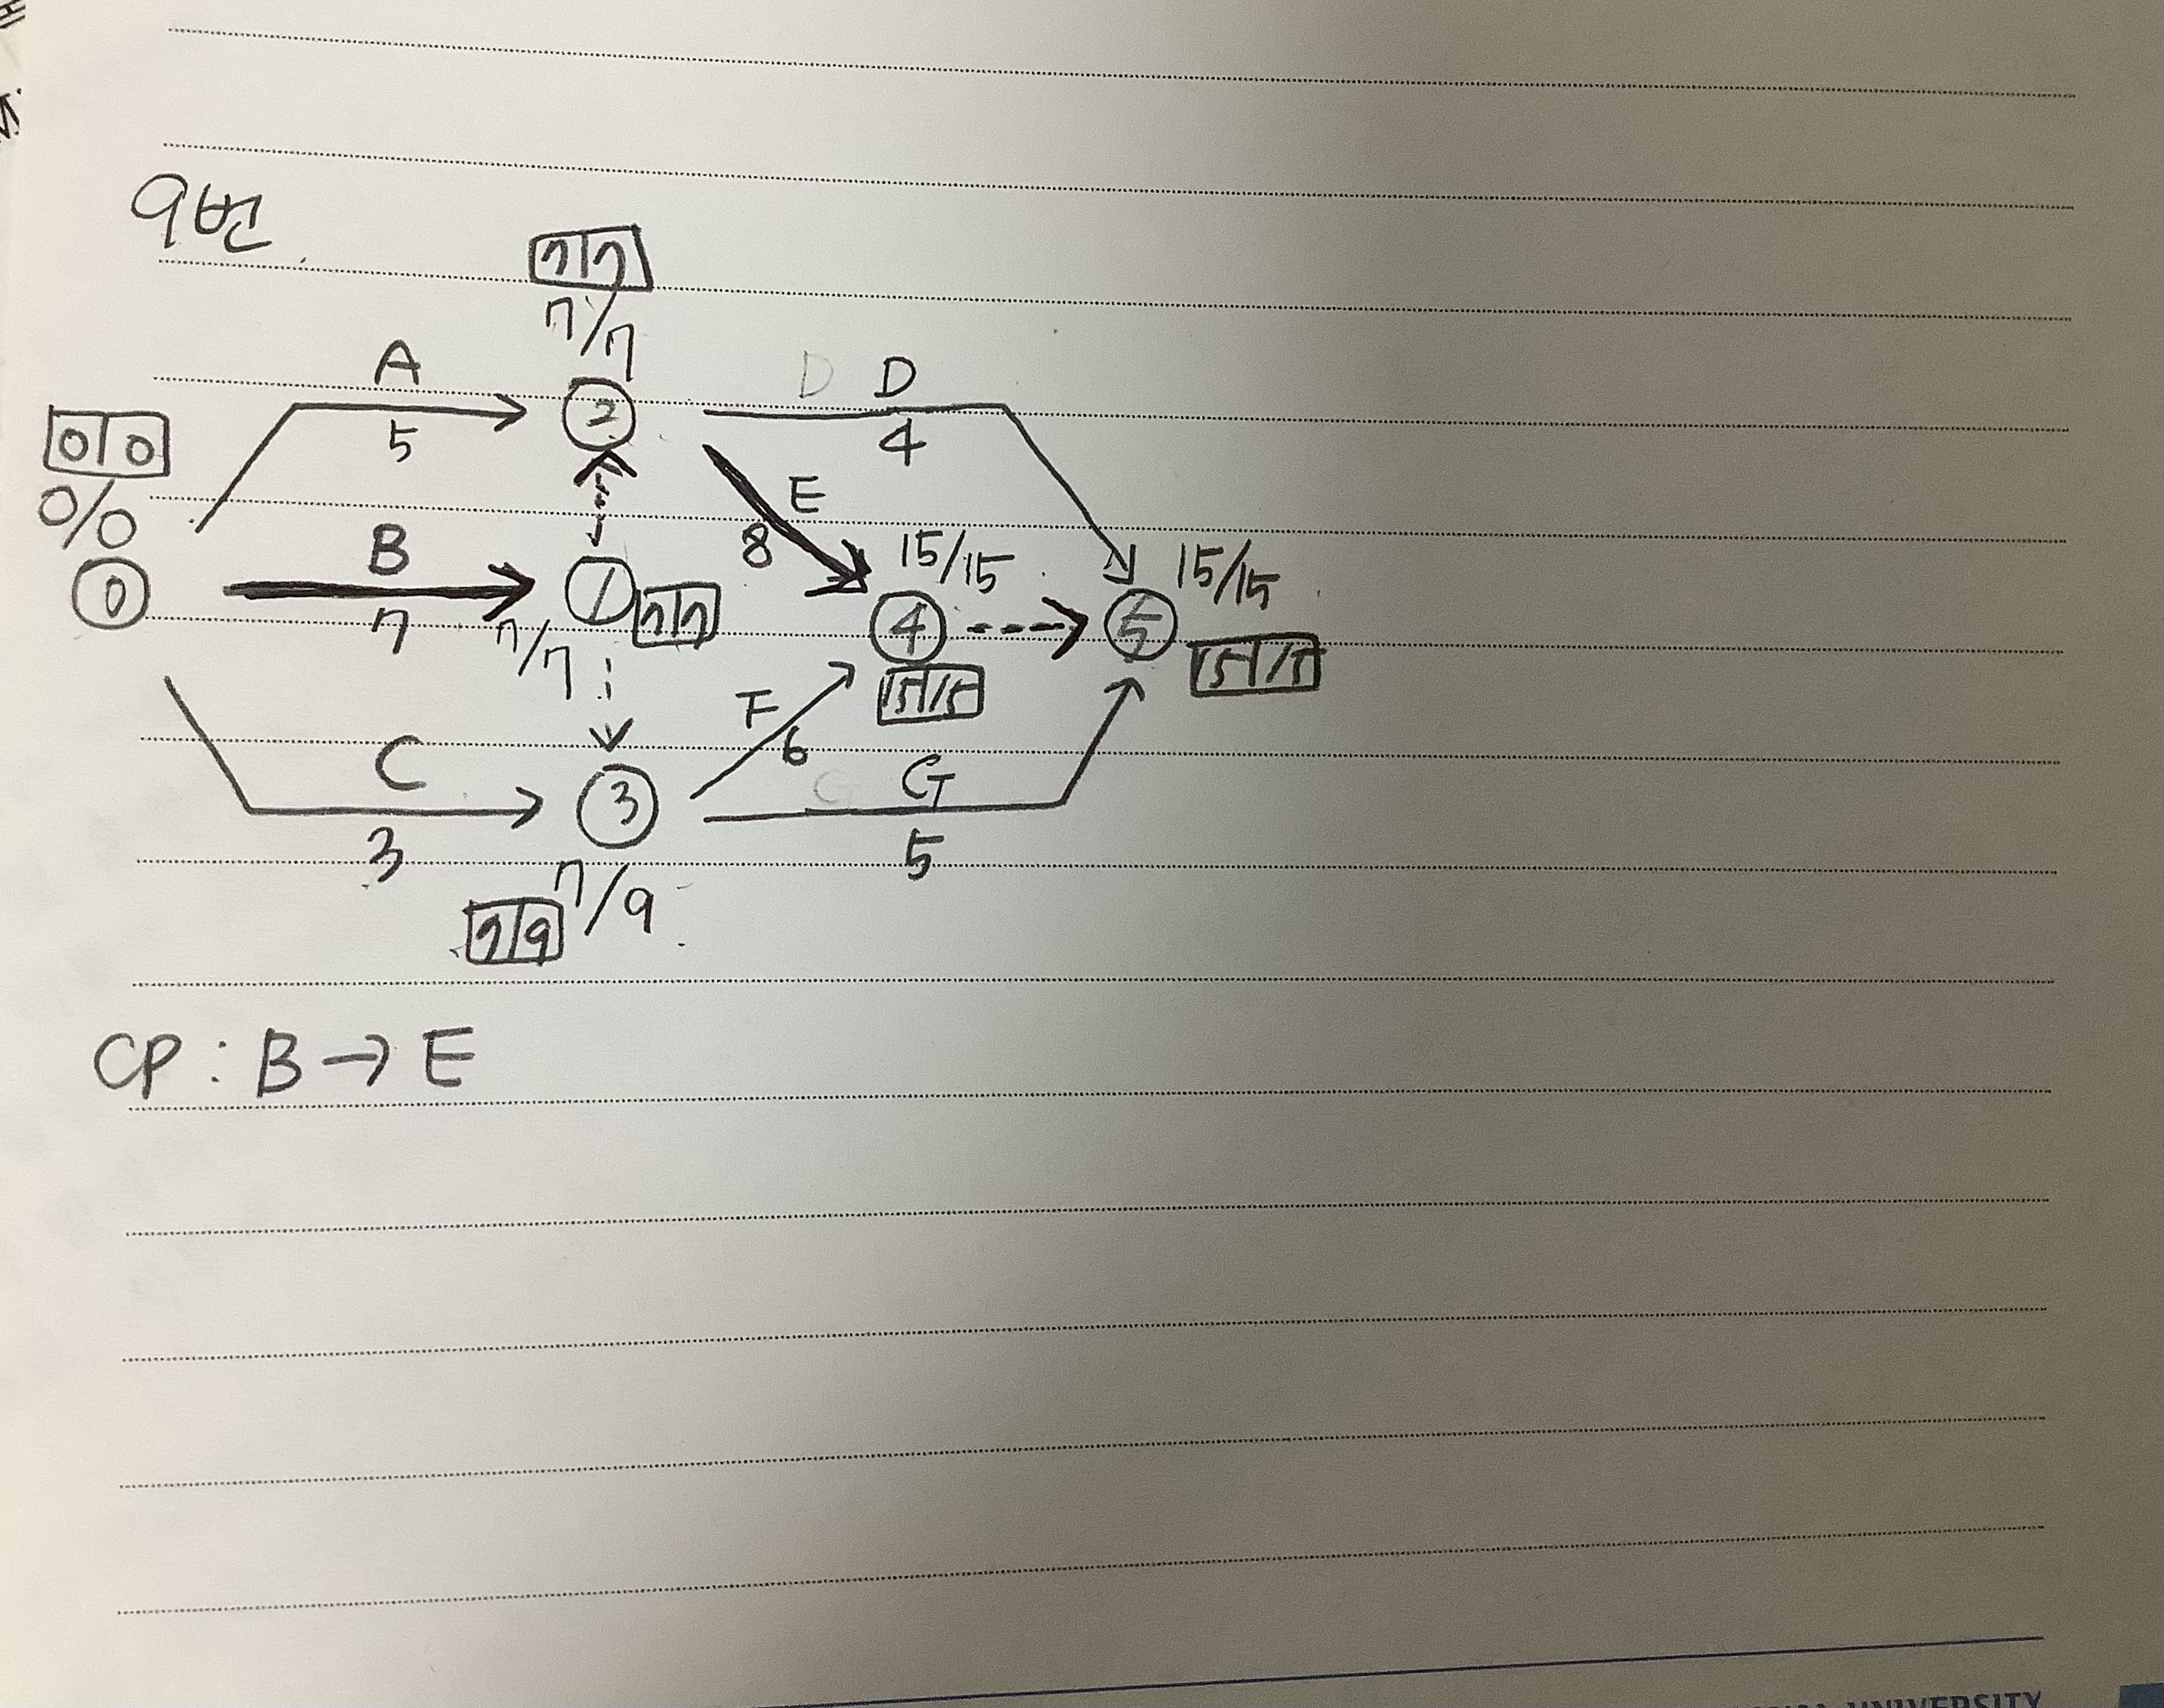 9번.
7 7
7/7
A
D D
5
4
0 0
0/0
2
E
8
B
7
15/15
15/15
0
1
7 7
7/7
4
5
15 15
15 15
F
6
C
3
3
G G
5
7/9
7 9
CP : B → E
UNIVERSITY